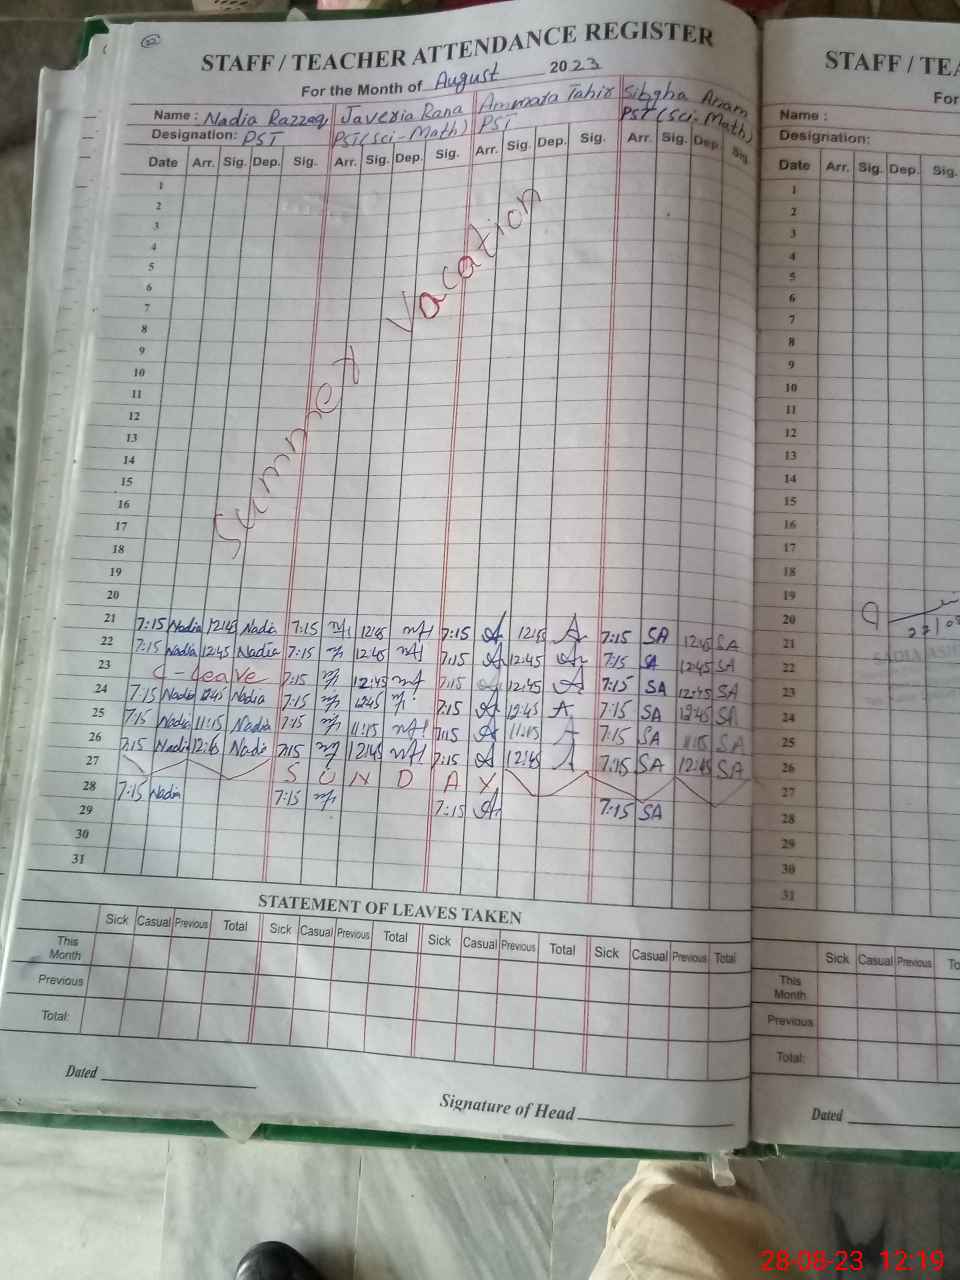 22
STAFF / TEACHER ATTENDANCE REGISTER
For the Month of August 2023
Name : Nadia Razzaq Javeria Rana Ammara Tahir Sibgha Anam
Designation: PST PST(Sci-Math) PST PST(Sci-Math)
Date Arr. Sig. Dep. Sig. Arr. Sig. Dep. Sig. Arr. Sig. Dep. Sig. Arr. Sig. Dep. Sig.
1
2
3
4
5
6
7
8
9
10
11
12
13
14
15
16
17
18
19
20
Summer Vacation
21 7:15 Nadia 12:45 Nadia 7:15 12:45 7:15 A 12:45 A 7:15 SA 12:45 SA
22 7:15 Nadia 12:45 Nadia 7:15 12:45 7:15 A 12:45 A 7:15 SA 12:45 SA
23 C-Leave 7:15 12:45 7:15 A 12:45 A 7:15 SA 12:45 SA
24 7:15 Nadia 12:45 Nadia 7:15 12:45 7:15 A 12:45 A 7:15 SA 12:45 SA
25 7:15 Nadia 11:15 Nadia 7:15 11:15 7:15 A 11:15 A 7:15 SA 11:15 SA
26 7:15 Nadia 12:45 Nadia 7:15 12:45 7:15 A 12:45 A 7:15 SA 12:45 SA
27 SUNDAY
28 7:15 Nadia 7:15 7:15 A 7:15 SA
29
30
31
STATEMENT OF LEAVES TAKEN
Sick Casual Previous Total Sick Casual Previous Total Sick Casual Previous Total Sick Casual Previous Total
This Month
Previous
Total:
Dated
Signature of Head
STAFF / TEA
For
Name :
Designation:
Date Arr. Sig. Dep. Sig.
1
2
3
4
5
6
7
8
9
10
11
12
13
14
15
16
17
18
19
20
21
22
23
24
25
26
27
28
29
30
31
Sick Casual Previous To
This Month
Previous
Total:
Dated
28-08-23 12:19